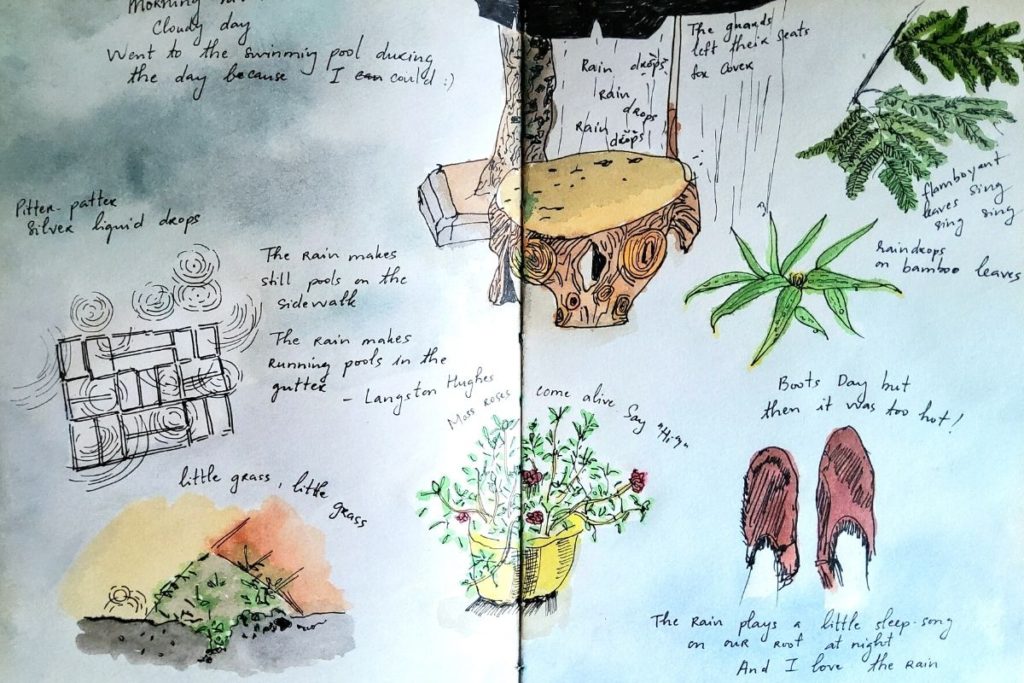 Morning
Cloudy day
Went to the swimmig pool during
the day because I can could :)
Pitter-patter
Silver liquid drops
The Rain makes
still pools on the
sidewalk
The Rain makes
Running pools in the
gutter
- Langston Hughes
little grass, little
grass
The guards
left their seats
for cover
Rain drops
Rain
drops
Rain
drops
flamboyant
leaves sing
sing sing
Raindrops
on bamboo leaves
Moss Roses come alive. Say "Hi"
Boots Day but
then it was too hot!
The Rain plays a little sleep-song
on our Roof at night
And I love the Rain